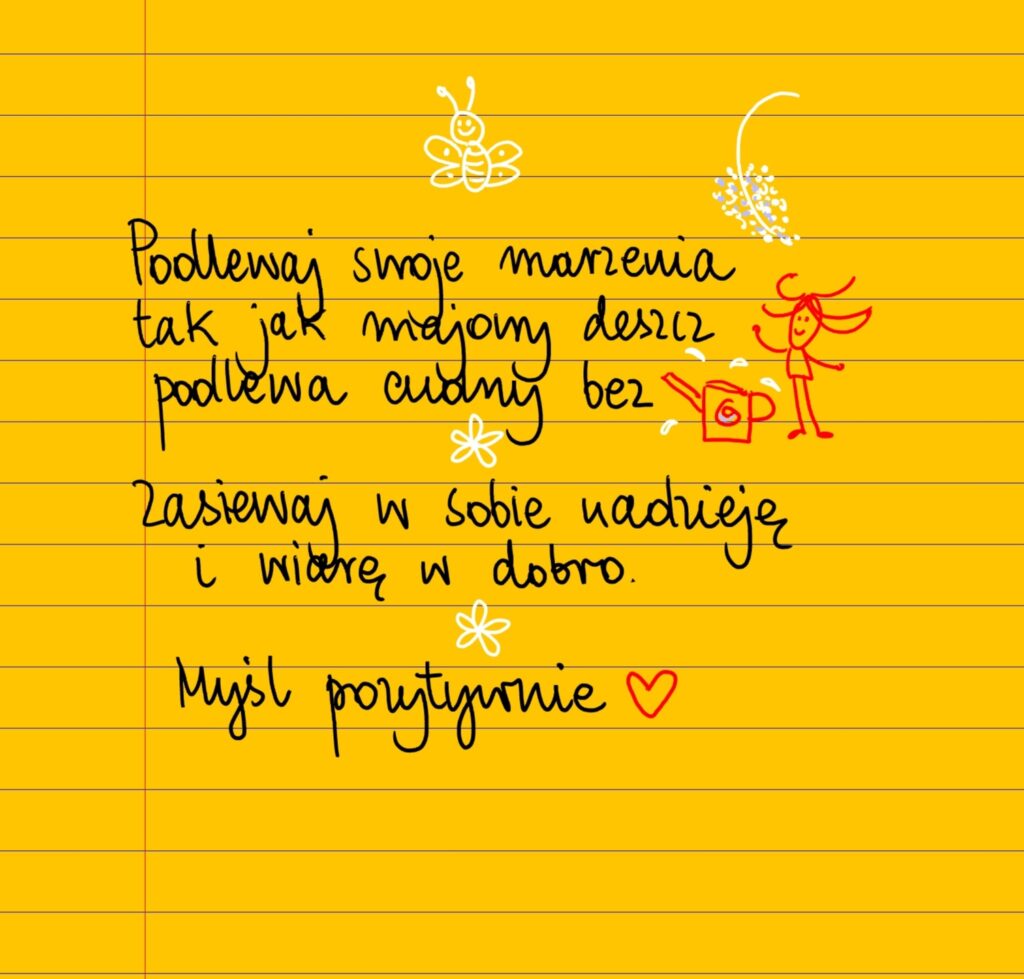 Podlewaj swoje marzenia
tak jak majowy deszcz
podlewa cudny bez
Zasiewaj w sobie nadzieję
i wiarę w dobro.
Myśl pozytywnie